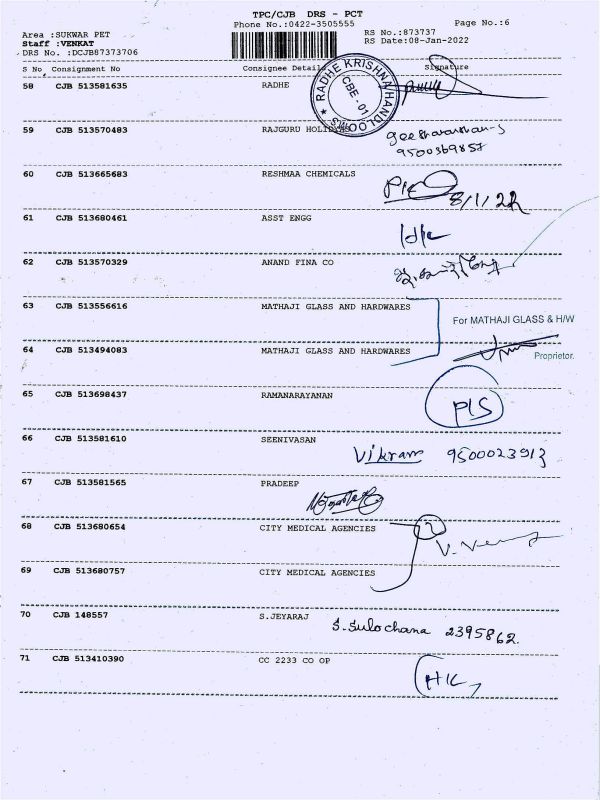 TPC/CJB DRS - PCT
Phone No.:0422-3505555
Page No.:6
Area :SUKWAR PET
RS No.:873737
Staff :VENKAT
RS Date:08-Jan-2022
DRS No. :DCJB87373706
S No Consignment No Consignee Details Signature
58 CJB 513581635 RADHE
RADHE KRISHNA HANDLOOMS
CBE - 01
59 CJB 513570483 RAJGURU HOLIDAYS
9500369857
60 CJB 513665683 RESHMAA CHEMICALS
8/1/22
61 CJB 513680461 ASST ENGG
62 CJB 513570329 ANAND FINA CO
63 CJB 513556616 MATHAJI GLASS AND HARDWARES
For MATHAJI GLASS & H/W
64 CJB 513494083 MATHAJI GLASS AND HARDWARES
Proprietor.
65 CJB 513698437 RAMANARAYANAN
PIS
66 CJB 513581610 SEENIVASAN
Vikram 9500023913
67 CJB 513581565 PRADEEP
68 CJB 513680654 CITY MEDICAL AGENCIES
2
69 CJB 513680757 CITY MEDICAL AGENCIES
70 CJB 148557 S.JEYARAJ
S.Sulochana 2395862.
71 CJB 513410390 CC 2233 CO OP